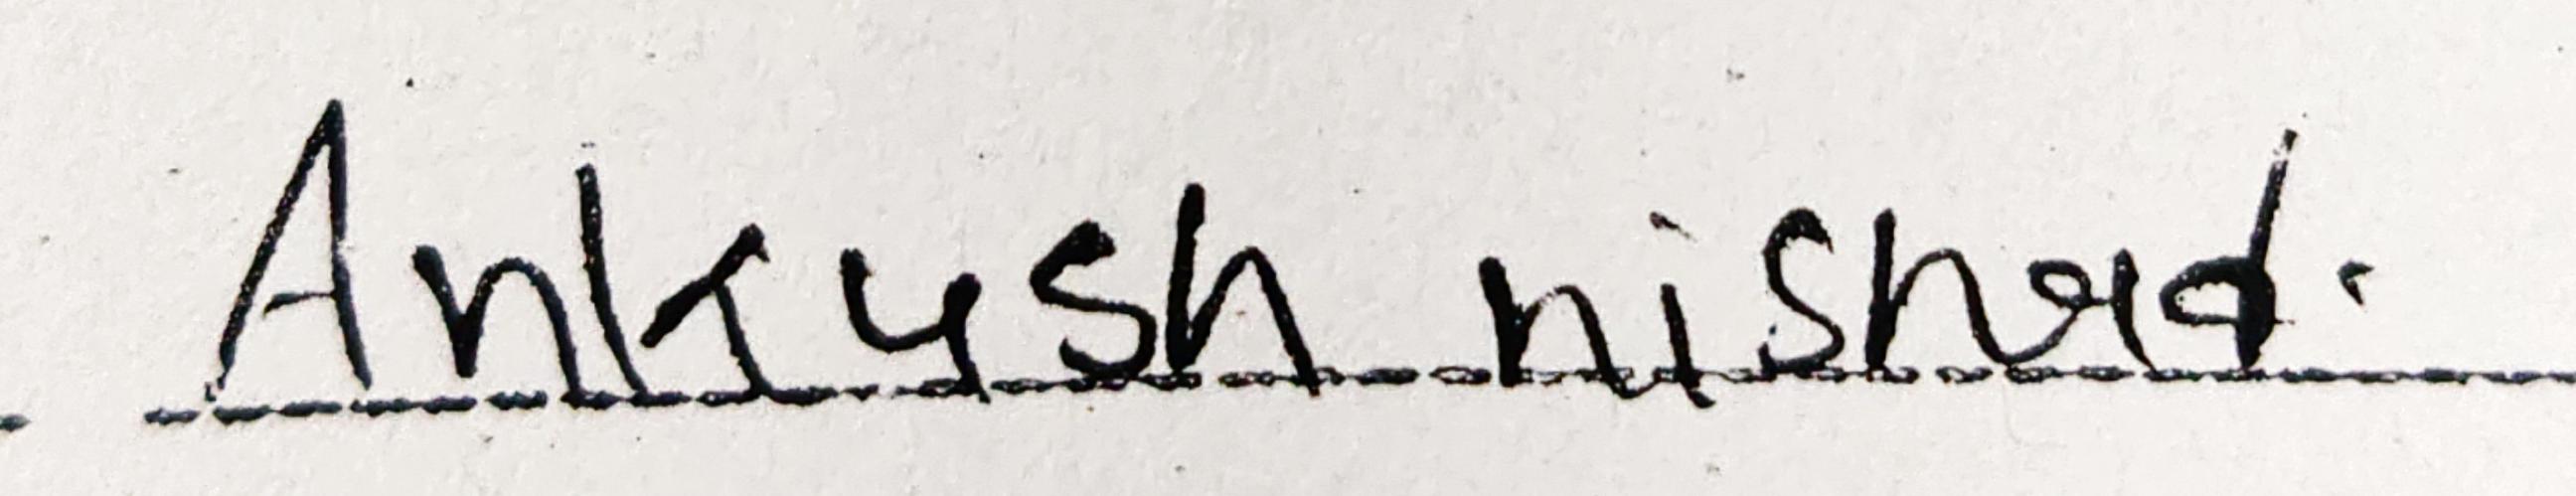 Ankush nishad.